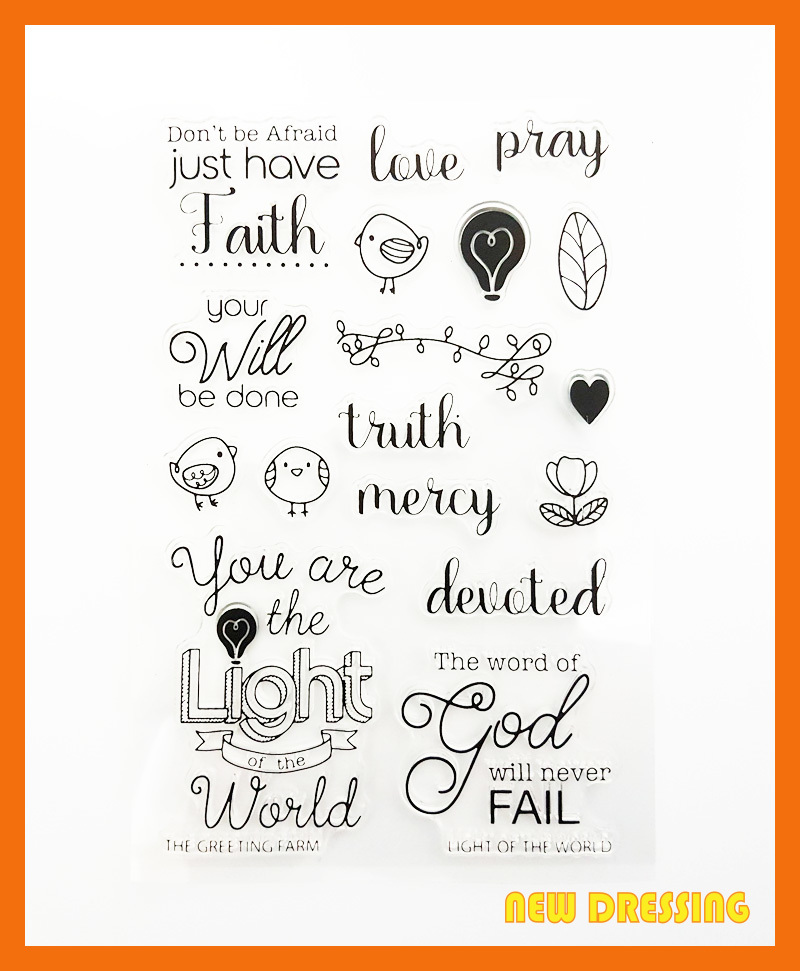 Don't be Afraid
just have
Faith
love
pray
your
Will
be done
truth
mercy
You are
the
Light
of the
World
devoted
The word of
God
will never
FAIL
THE GREETING FARM
LIGHT OF THE WORLD
NEW DRESSING